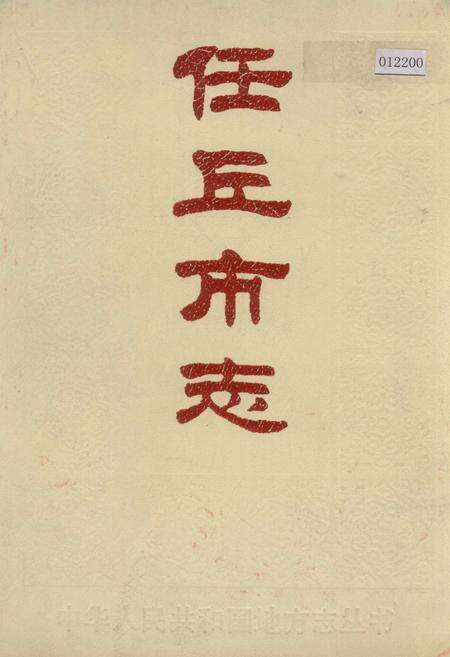 012200
任丘市志
中华人民共和国地方志丛书